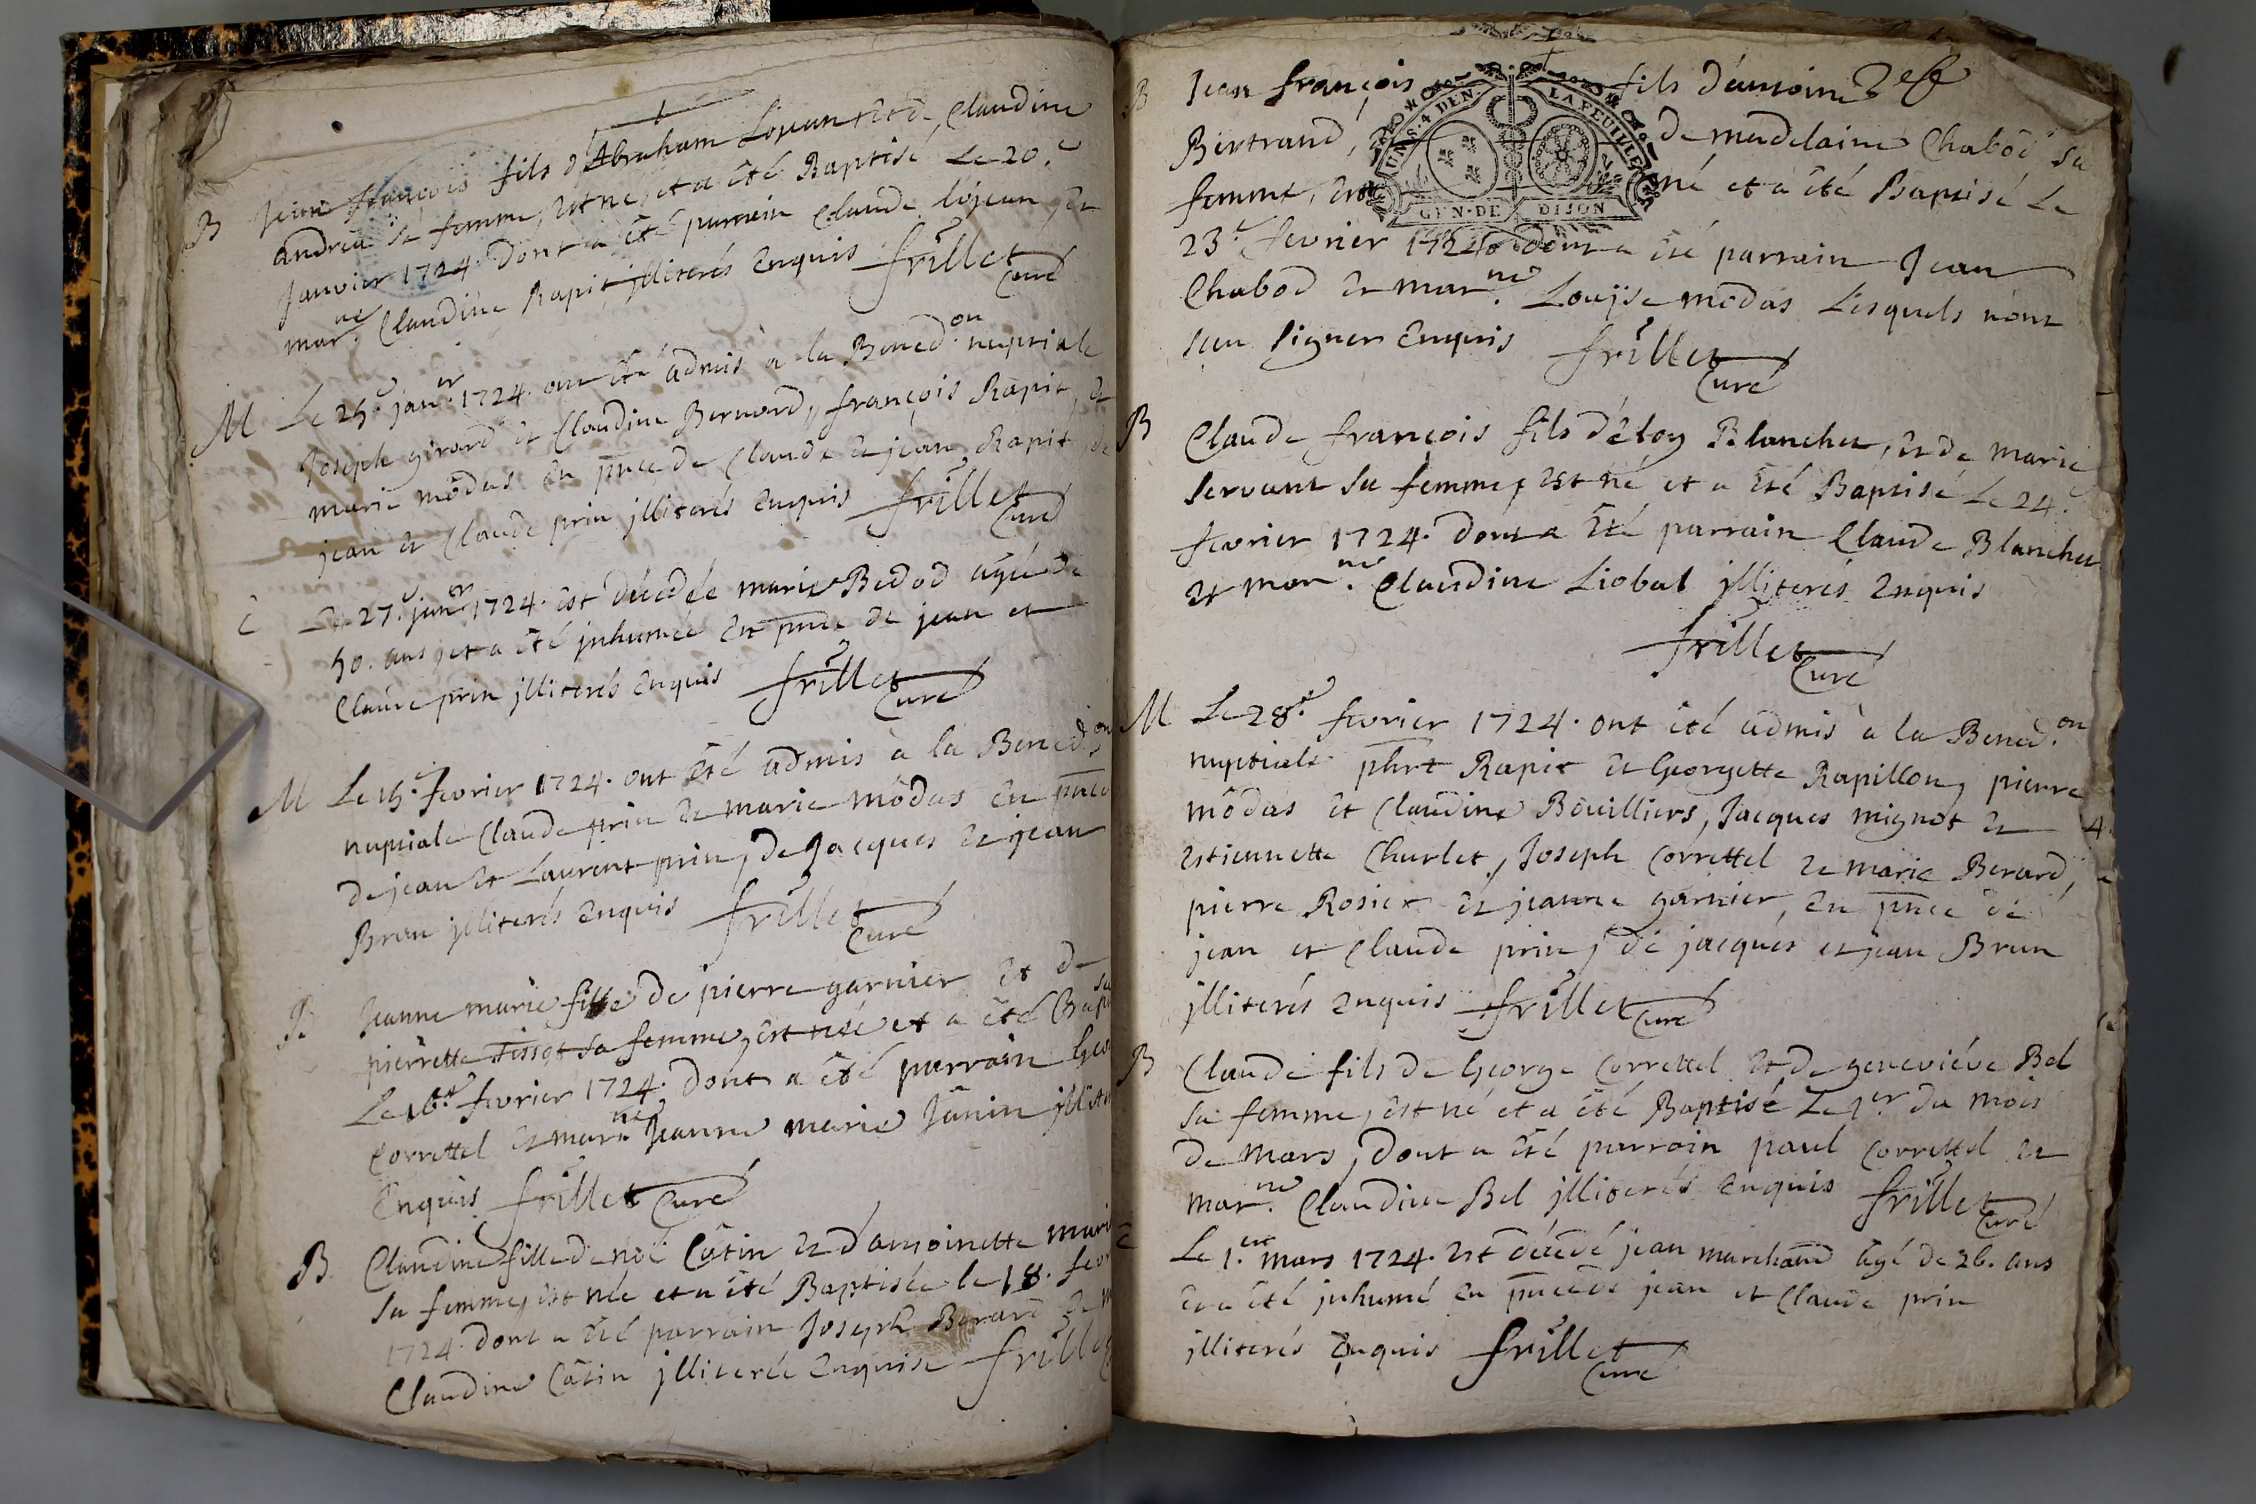 B Jean François fils d'Abraham Lojean et de Claudine
Andrea sa femme, est né, et a été Baptisé Le 20.e
Janvier 1724. Dont a été parrain Claude lojean, et
mar.ne Claudine Rapit jlliterés Enquis frillet
Curé
M Le 25.e jan.er 1724. ont été admis à la Bened.on nuptiale
Joseph girard et Claudine Bernard, françois Rapit, et
marie môdas en pnce de Claude et jean Rapit, de
jean et Claude prin jlliterés Enquis frillet
Curé
Le 27.e jan.er 1724. est décédée marie Bedod agée de
50. ans, et a été jnhumée en pnce de jean et
Claude prin jlliterés Enquis frillet
Curé
M Le 15.e fevrier 1724. ont été admis à la Bened.on
nuptiale Claude prin et marie môdas en pnce
de jean et Laurent prin, de Jacques et jean
Brun jlliterés Enquis frillet
Curé
B Jeanne marie fille de pierre garnier et de
pierrette Tissot sa femme, est née et a été Bap
Le 16.e fevrier 1724. dont a été parrain Geo
Correttel et mar.ne Jeanne marie Janin jllit
Enquis frillet Curé
B Claudine fille de noë Câtin et d'antoinette mari
sa femme, est née et a été Baptisée le 18. fev
1724. dont a été parrain Joseph Berard et m
Claudine Câtin jlliterée Enquise frillet
B Jean françois fils d'antoine
Bertrand, de madelaine Chabod sa
femme, est né et a été Baptisé Le
23.e fevrier 1724. dont a été parrain Jean
Chabod et mar.ne Louÿse môdas Lesquels n'ont
sçeu signer Enquis frillet
Curé
UN.S.4 DEN. LA FEUILLE
GEN. DE DIJON
B Claude françois fils d'éloy Blanchet, et de marie
servant sa femme, est né et a été Baptisé Le 24.e
fevrier 1724. Dont a été parrain Claude Blanchet
et mar.ne Claudine Liobal jlliterés Enquis
frillet
Curé
M Le 28.e fevrier 1724. ont été admis à la Bened.on
nuptiale phrt Rapit et Georgette Rapillon, pierre
môdas et Claudine Bouilliers, Jacques mignot et
Estiennette Charlet, Joseph Correttel et marie Berard,
pierre Rosier et jeanne garnier, en pnce de
jean et Claude prin, de jacques et jean Brun
jlliterés Enquis frillet Curé
4.
B Claude fils de George Correttel et de geneviéve Bel
sa femme, est né et a été Baptisé Le 1.er du mois
de mars, Dont a été parrain paul Correttel et
mar.ne Claudine Bel jlliterés Enquis frillet
Curé
Le 1.er mars 1724. est décédé jean marchand âgé de 26. ans
et a été jnhumé en pnce de jean et Claude prin
jlliterés Enquis frillet
Curé